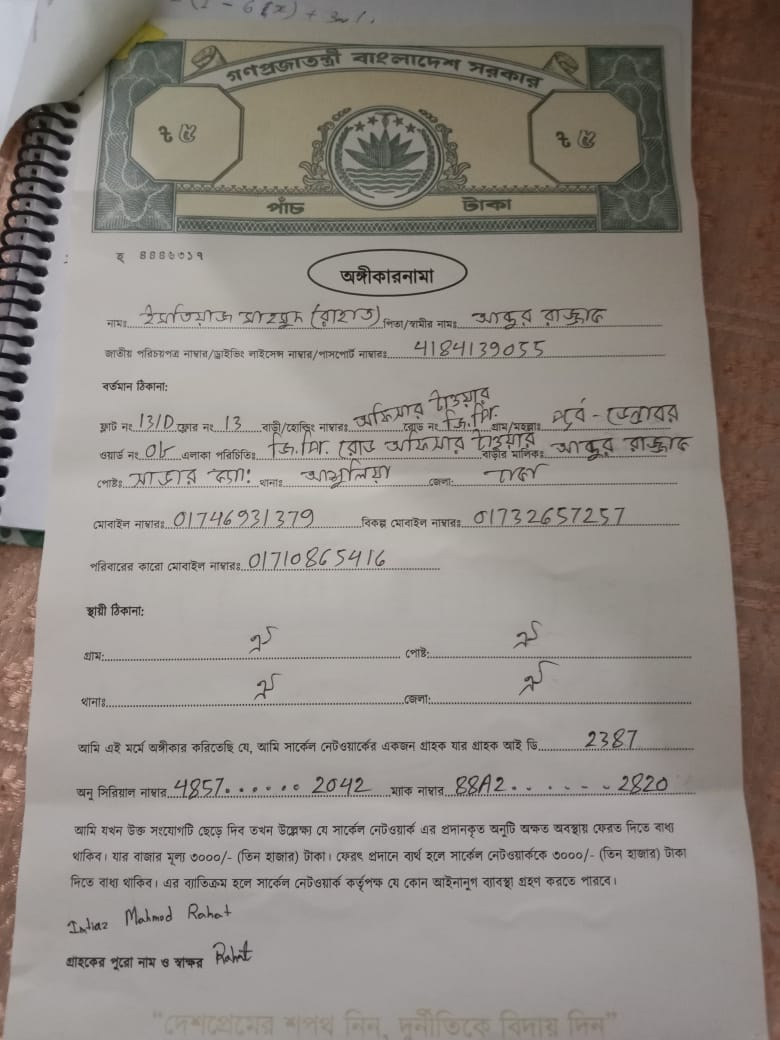 গণপ্রজাতন্ত্রী বাংলাদেশ সরকার
৳ ৫ ৳ ৫
পাঁচ টাকা
হ ৪৪৪৬৩১৭
অঙ্গীকারনামা
নামঃ ইমতিয়াজ মাহমুদ (রাহাত) পিতা/স্বামীর নামঃ আব্দুর রাজ্জাক
জাতীয় পরিচয়পত্র নাম্বার/ড্রাইভিং লাইসেন্স নাম্বার/পাসপোর্ট নাম্বারঃ 4184139055
বর্তমান ঠিকানা:
ফ্লাট নং 13/D ফ্লোর নং 13 বাড়ী/হোল্ডিং নাম্বারঃ অফিসার টাওয়ার রোড নং জি.পি. গ্রাম/মহল্লাঃ পূর্ব-ডেন্ডাবর
ওয়ার্ড নং 08 এলাকা পরিচিতিঃ জি.পি. রোড অফিসার টাওয়ার বাড়ীর মালিকঃ আব্দুর রাজ্জাক
পোষ্টঃ সাভার থানাঃ আশুলিয়া জেলা: ঢাকা
মোবাইল নাম্বারঃ 01746931379 বিকল্প মোবাইল নাম্বারঃ 01732657257
পরিবারের কারো মোবাইল নাম্বারঃ 01710865416
স্থায়ী ঠিকানা:
গ্রাম: ঐ পোষ্ট: ঐ
থানাঃ ঐ জেলা: ঐ
আমি এই মর্মে অঙ্গীকার করিতেছি যে, আমি সার্কেল নেটওয়ার্কের একজন গ্রাহক যার গ্রাহক আই ডি 2387
অনু সিরিয়াল নাম্বার 4857...... 2042 ম্যাক নাম্বার 88A2. . . . - - 2820
আমি যখন উক্ত সংযোগটি ছেড়ে দিব তখন উল্লেক্ষ্য যে সার্কেল নেটওয়ার্ক এর প্রদানকৃত অনুটি অক্ষত অবস্থায় ফেরত দিতে বাধ্য
থাকিব। যার বাজার মূল্য ৩০০০/- (তিন হাজার) টাকা। ফেরৎ প্রদানে ব্যর্থ হলে সার্কেল নেটওয়ার্ককে ৩০০০/- (তিন হাজার) টাকা
দিতে বাধ্য থাকিব। এর ব্যতিক্রম হলে সার্কেল নেটওয়ার্ক কর্তৃপক্ষ যে কোন আইনানুগ ব্যাবস্থা গ্রহণ করতে পারবে।
Imtiaz Mahmod Rahat
গ্রাহকের পুরো নাম ও স্বাক্ষর Rahat
"দেশপ্রেমের শপথ নিন, দুর্নীতিকে বিদায় দিন"